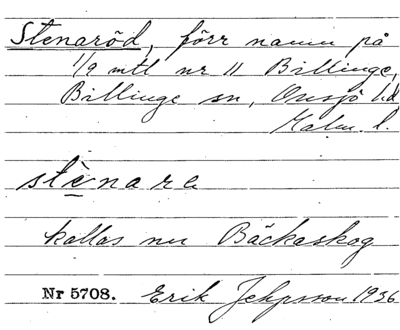 Stenaröd, förr namn på
1/9 mtl nr 11 Billinge,
Billinge sn, Onsjö hd
Malm. l.
stènara
kallas nu Bäckaskog
Nr 5708. Erik Jeppsson 1936